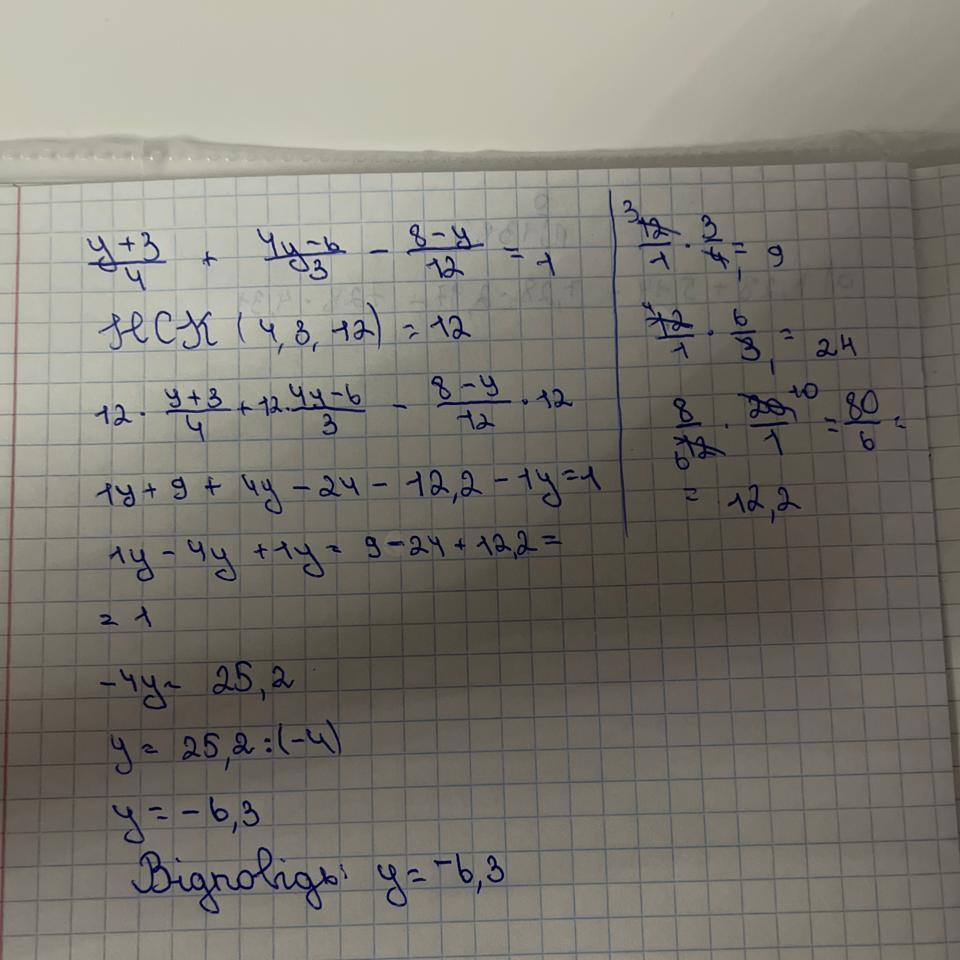 (y+3)/4 + (4y-6)/3 - (8-y)/12 = 1
НСК (4, 3, 12) = 12
12 · (y+3)/4 + 12 · (4y-6)/3 - (8-y)/12 · 12
1y + 9 + 4y - 24 - 12,2 - 1y = 1
1y - 4y + 1y = 9 - 24 + 12,2 =
= 1
-4y = 25,2
y = 25,2 : (-4)
y = -6,3
Відповідь: y = -6,3
3 12/1 · 3/4 1 = 9
12/1 · 6/3 1 = 24
8/12 6 · 20/1 10 = 80/6 =
= 12,2